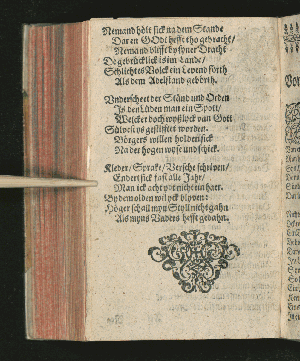 Nemand hölt sick na dem Stande
Dar en GOdt hefft tho gebracht/
Nemand blifft by syner Dracht
De gebrücklick is im Lande/
Schlichtes Volck ein Levend förth
Als dem Adelstand gehörth.
Underscheet der Ständ und Orden
Is den Lüden man ein Spott/
Welcker doch wyßlyck van Gott
Sülvest ys gestifftet worden.
Börgers willen holden sick
Na der hogen wyse und schick.
Kleder/ Sprake/ Versche schriven/
Endert sick fast alle Jahr/
Man ick acht ydt nicht ein haer.
By dem olden wil yck blyven:
Höger schal myn Styll nicht gahn
Als myns Vaders hefft gedahn.